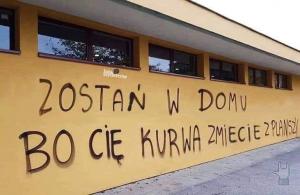 ZOSTAŃ W DOMU
BO CIĘ KURWA ZMIECIE Z PLANSZY